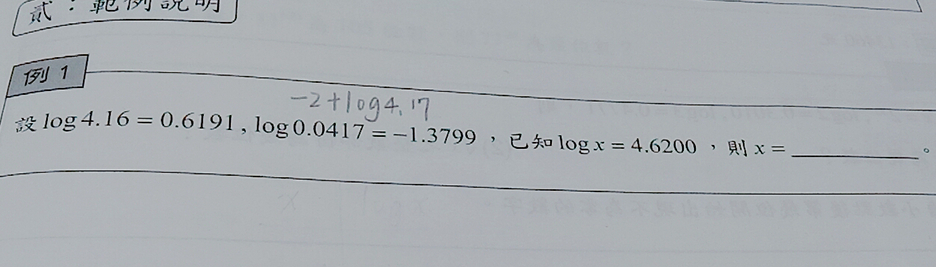 貳：範例說明
例 1
-2+log4.17
設 log 4.16 = 0.6191 , log 0.0417 = -1.3799 ， 已知 log x = 4.6200 ， 則 x = __________ 。